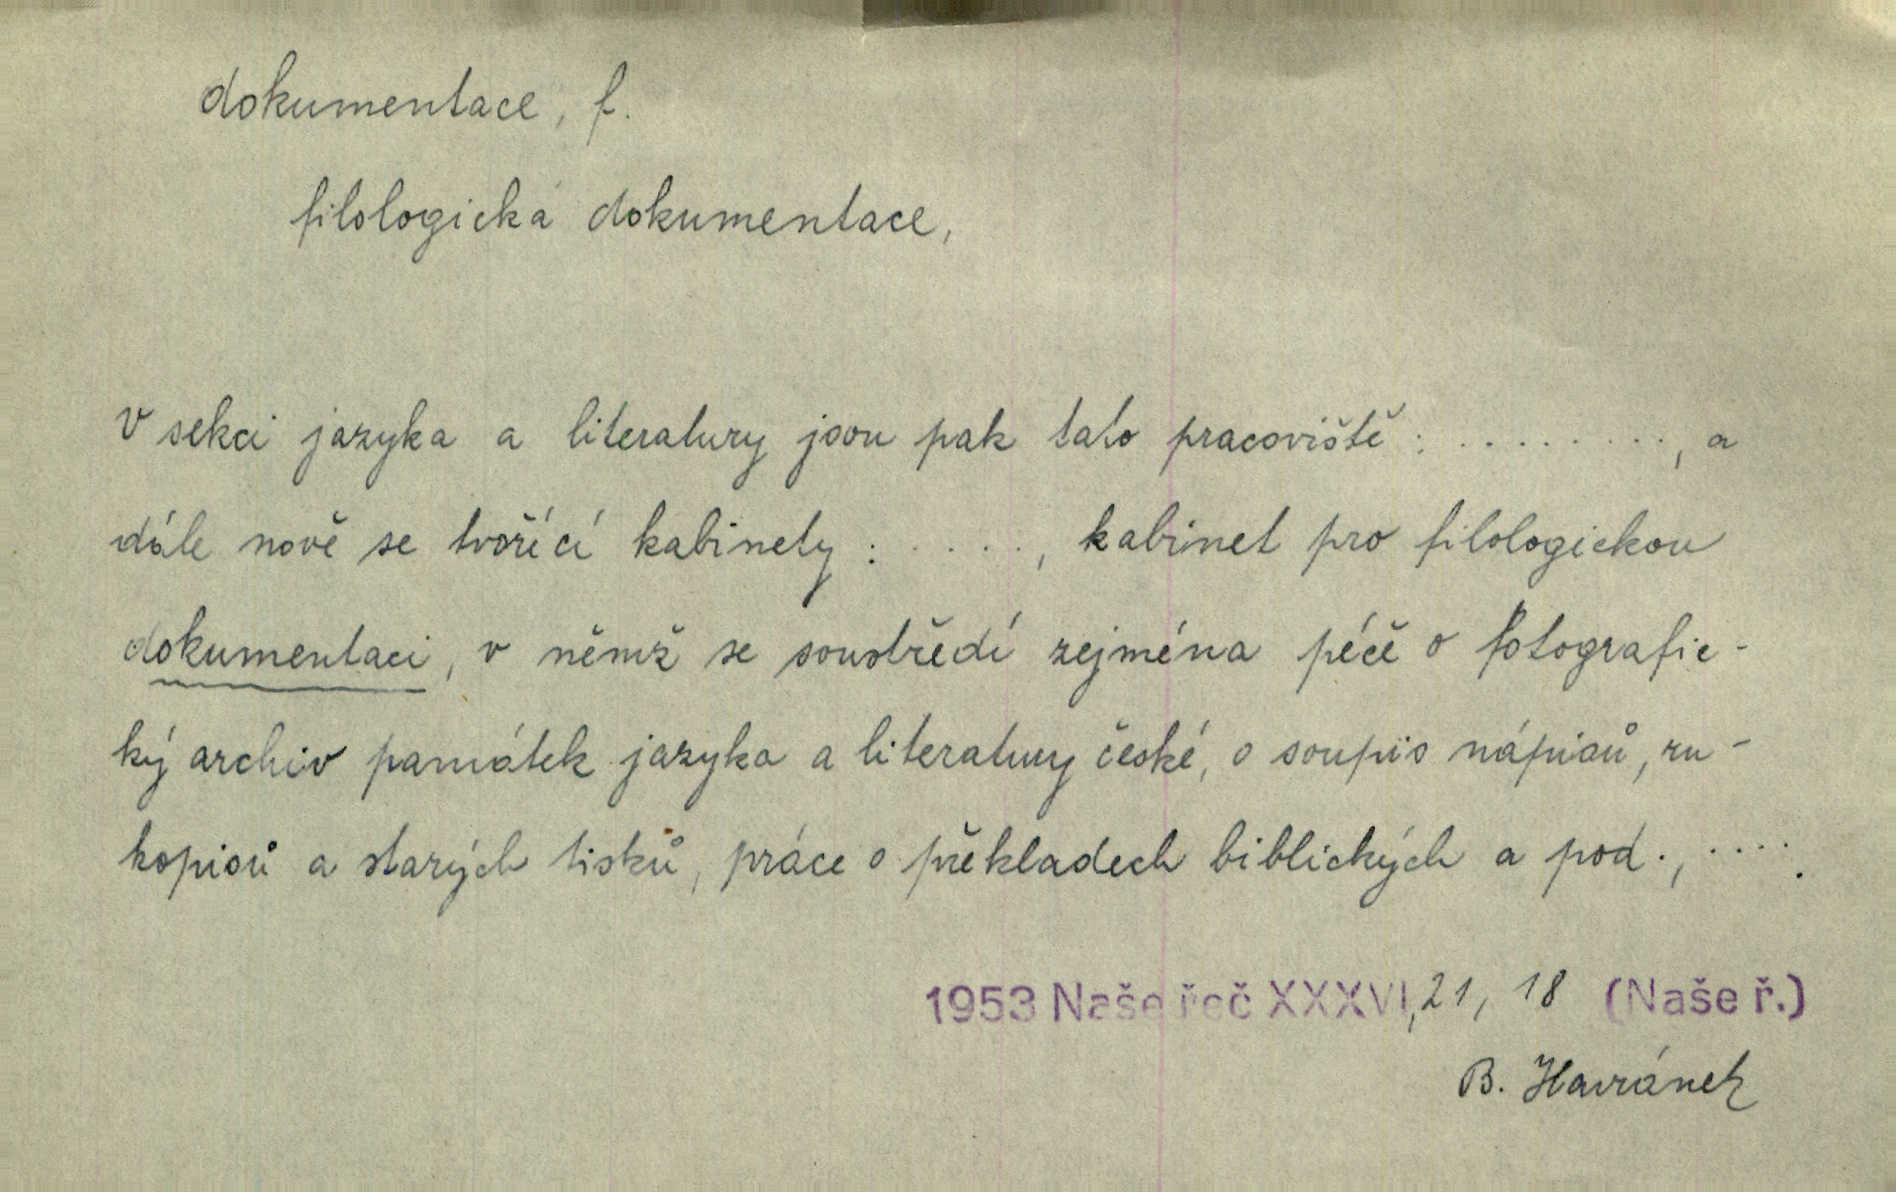 dokumentace, f.
filologická dokumentace,
V sekci jazyka a literatury jsou pak tato pracoviště: ........., a
dále nově se tvořící kabinety: ....., kabinet pro filologickou
dokumentaci, v němž se soustředí zejména péče o fotografic-
ký archiv památek jazyka a literatury české, o soupis nápisů, ru-
kopisů a starých tisků, práce o překladech biblických a pod., .....
1953 Naše řeč XXXVI, 21, 18 (Naše ř.)
B. Havránek